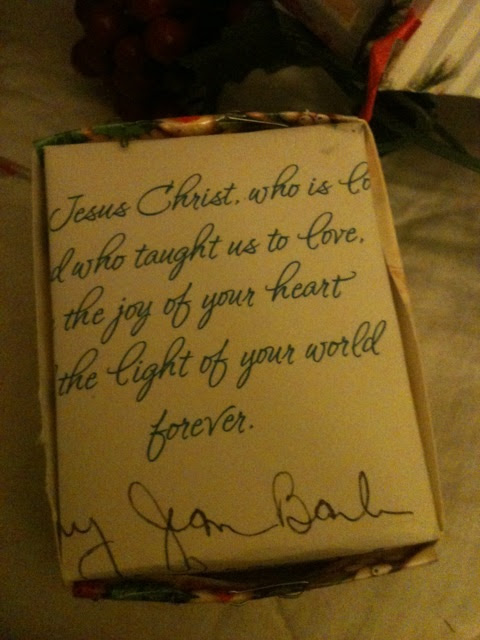 Jesus Christ, who is lo
d who taught us to love,
the joy of your heart
the light of your world
forever.
y Jean